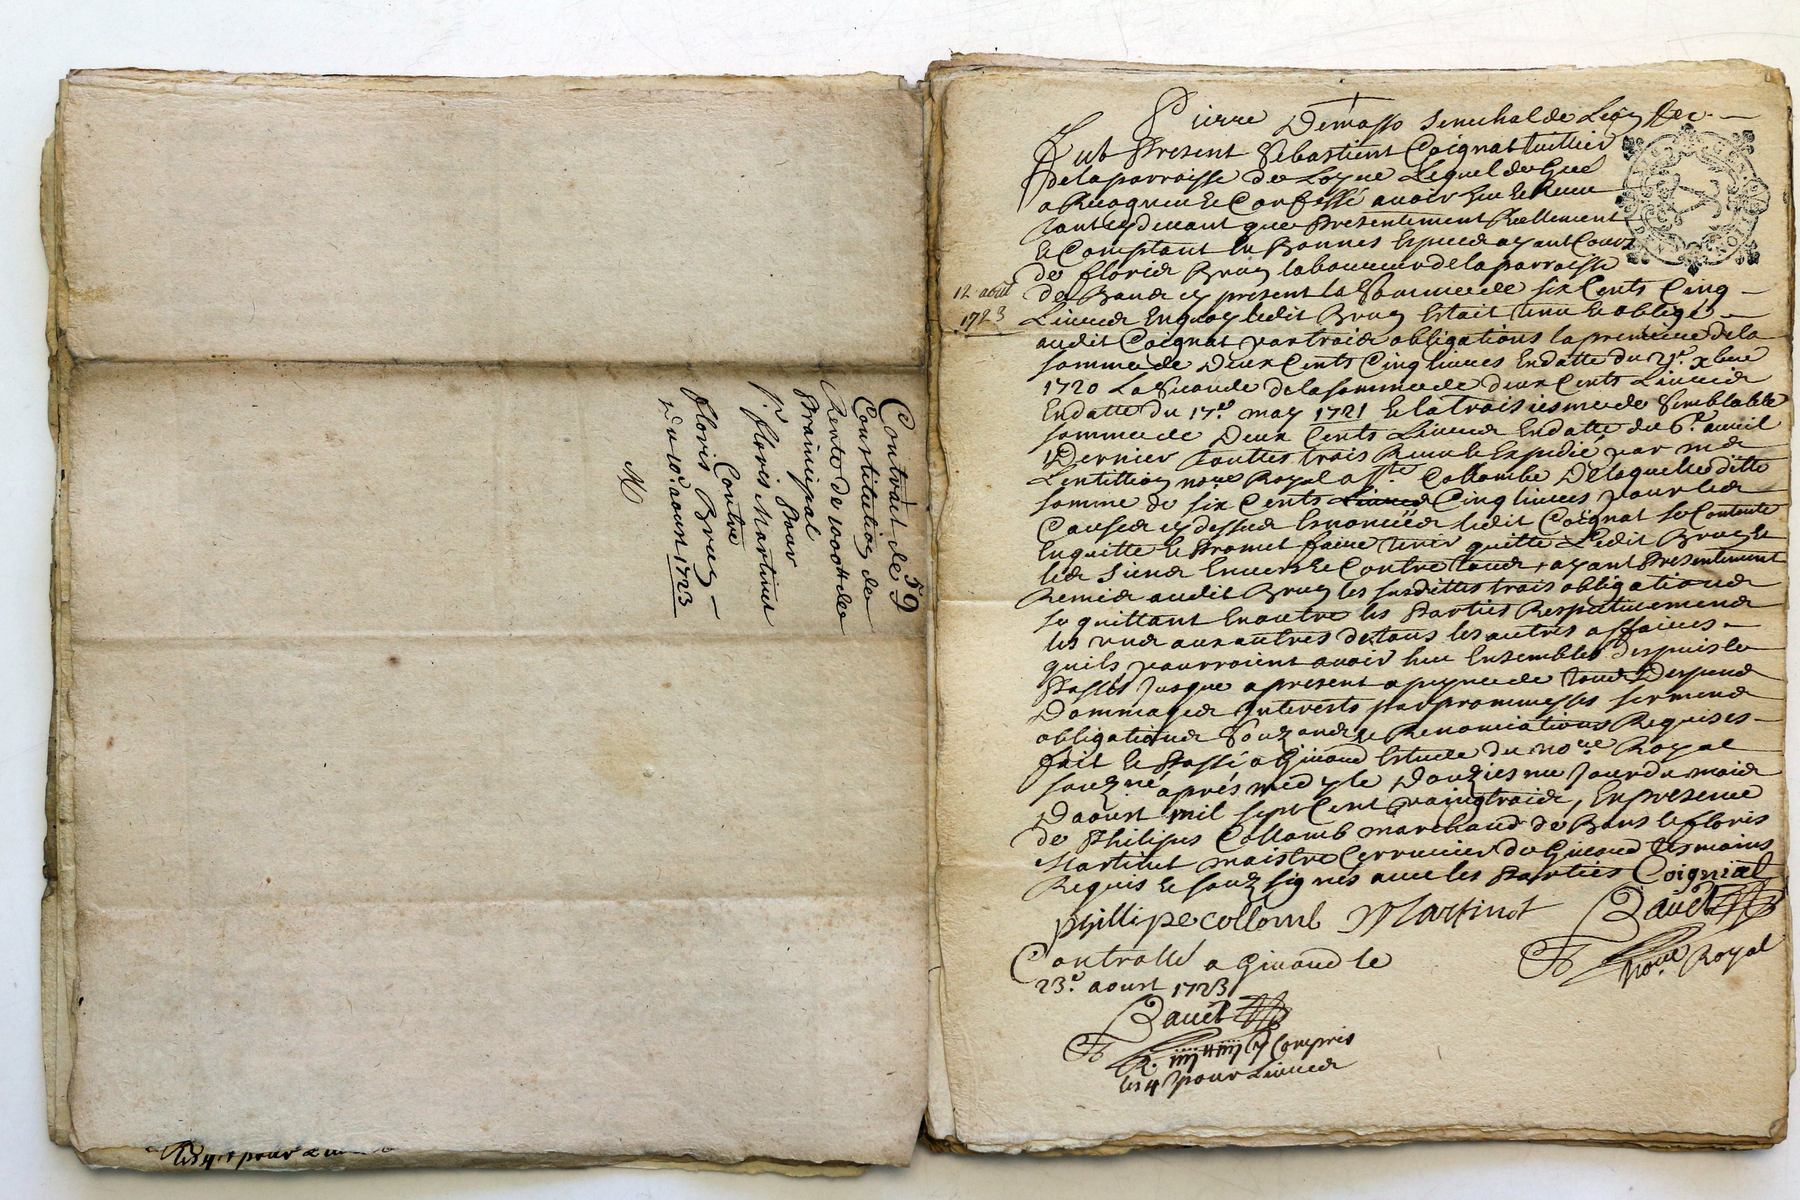 59
Contrat de
Constitution de
Rente de 1000ᵗᵗ de
Prainicipal
Pour
Sʳ. floris Martinet
Contre
floris Bruy –
du 10ᵉ. aoust 1723
12 août
1723
Pierre Demasso Senechal de Leon
fut Present Sebastient Coignat tuillier
de la parroisse de Loyre Lequel de Gré
a Recogneu Et Confessé avoir Eu Et Receu
tant cy devant que Presentement Reellement
Et Comptant En Bonnes Especes ayant Cours
de floris Bruy laboureur de la parroisse
de Bans cy present la Somme de six Cents Cinq –
Livres Enquoy ledit Bruy Estait tenu Et obligé –
audit Coignat par trois obligations la premiere de la
somme de Deux Cents Cinq livres En datte du 21ᵉ. xbre
1720 La Seconde de la somme de deux Cents Livres
En datte du 17ᵉ. may 1721 Et la troisiesme de Semblable
somme de Deux Cents Livres En datte du 6ᵉ. avril
Dernier touttes trois Receu Et Expedié par me
Lentillion noʳᵉ Royal a Sᵗᵉ Collombe De laquelle ditte
somme de six Cents Livres Cinq livres pour les
Causes cy dessus Enoncées ledit Coignat se Contente
En quitte Et Promet faire tenir quitte Ledit Bruy Et
les Siens Envers Et Contre tous, ayant Presentement
Remis audit Bruy les susdittes trois obligations
se quittant En outre les Parties Respectivement
les uns aux autres de tous les autres affaires –
quils pourroient avoir heu Ensembles despuis le
Passés Jusque a present a peyne de tous Despens
Dommages Interests par prommesses sermens
obligations Renonciations Requises –
fait Et Passé a Givord Estude du noʳᵉ Royal
souzné aprés midy le Douziesme Jour du mois
Daoust mil sept Cent vaingtrois, En presence
de Philipes Collomb marchand de Bans Et floris
Martinet maistre Cerrurier de Givord tesmoins
Requis Et souz signés avec les Parties Coignial
phillipe collomb Martinot Bauet
noʳᵉ Royal
Controllé a Givord le
23ᵉ. aoust 1723
Bauet
Compris
les 4 pour Livres
les 4 pour